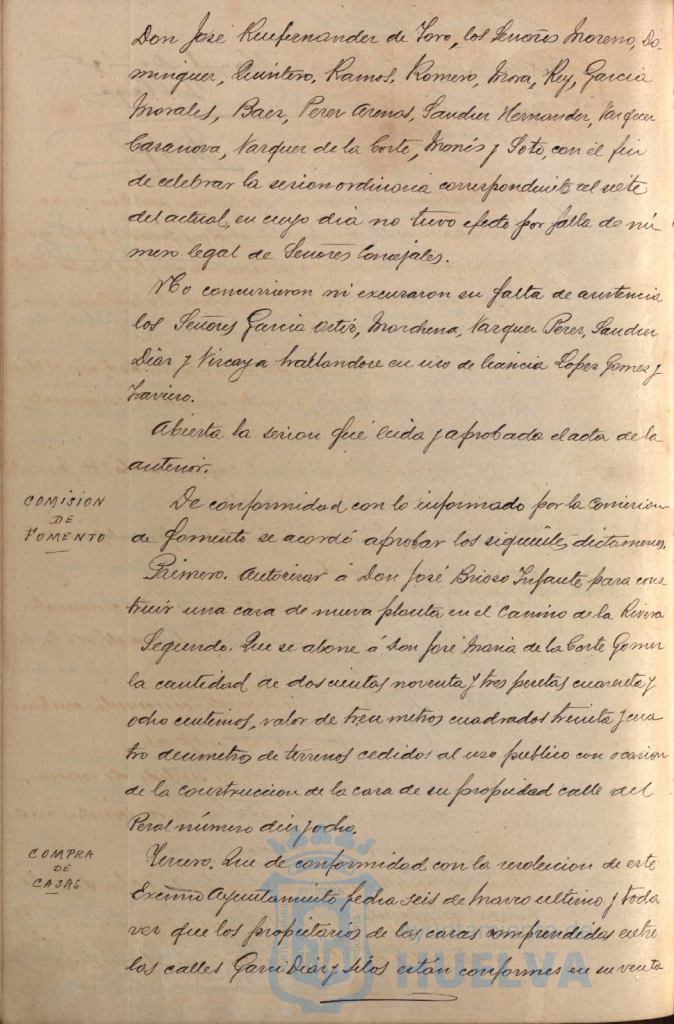 Don José Ruifernandez de Toro, los Señores Moreno, Do-
minguez, Quintero, Ramos, Romero, Mora, Rey, Garcia
Morales, Baez, Perez Arenas, Sanchez Hernandez, Vazquez
Casanova, Vazquez de la Corte, Monis y Soto, con el fin
de celebrar la sesion ordinaria correspondiente al siete
del actual, en cuyo dia no tuvo efecto por falta de nú-
mero legal de Señores Concejales.
No concurrieron ni excusaron su falta de asistencia
los Señores Garcia Ortiz, Marchena, Vazquez Perez, Sanchez
Diaz y Vizcaya hallandose en uso de licencia Lopez Gomez y
Abierta la sesion fué leida y aprobada el acta de la
anterior.
COMISION
DE
FOMENTO
De conformidad con lo informado por la Comision
de fomento se acordó aprobar los siguientes dictamenes.
Primero. Autorizar á Don José Brioso Infante para cons-
truir una casa de nueva planta en el Camino de la Rivera
Segundo. Que se abone á Don José Maria de la Corte Gomez
la cantidad de doscientas noventa y tres pesetas cuarenta y
ocho centimos, valor de trece metros cuadrados treinta y cua
tro decimetros de terrenos cedidos al uso publico con ocasion
de la construccion de la casa de su propiedad calle del
Peral número diez y ocho.
COMPRA
DE
CASAS
Tercero. Que de conformidad con la resolucion de este
Excmo Ayuntamiento fecha seis de Marzo ultimo y toda
vez que los propietarios de las casas comprendidas entre
las calles Garci Diaz y Silos están conformes en su venta
HUELVA